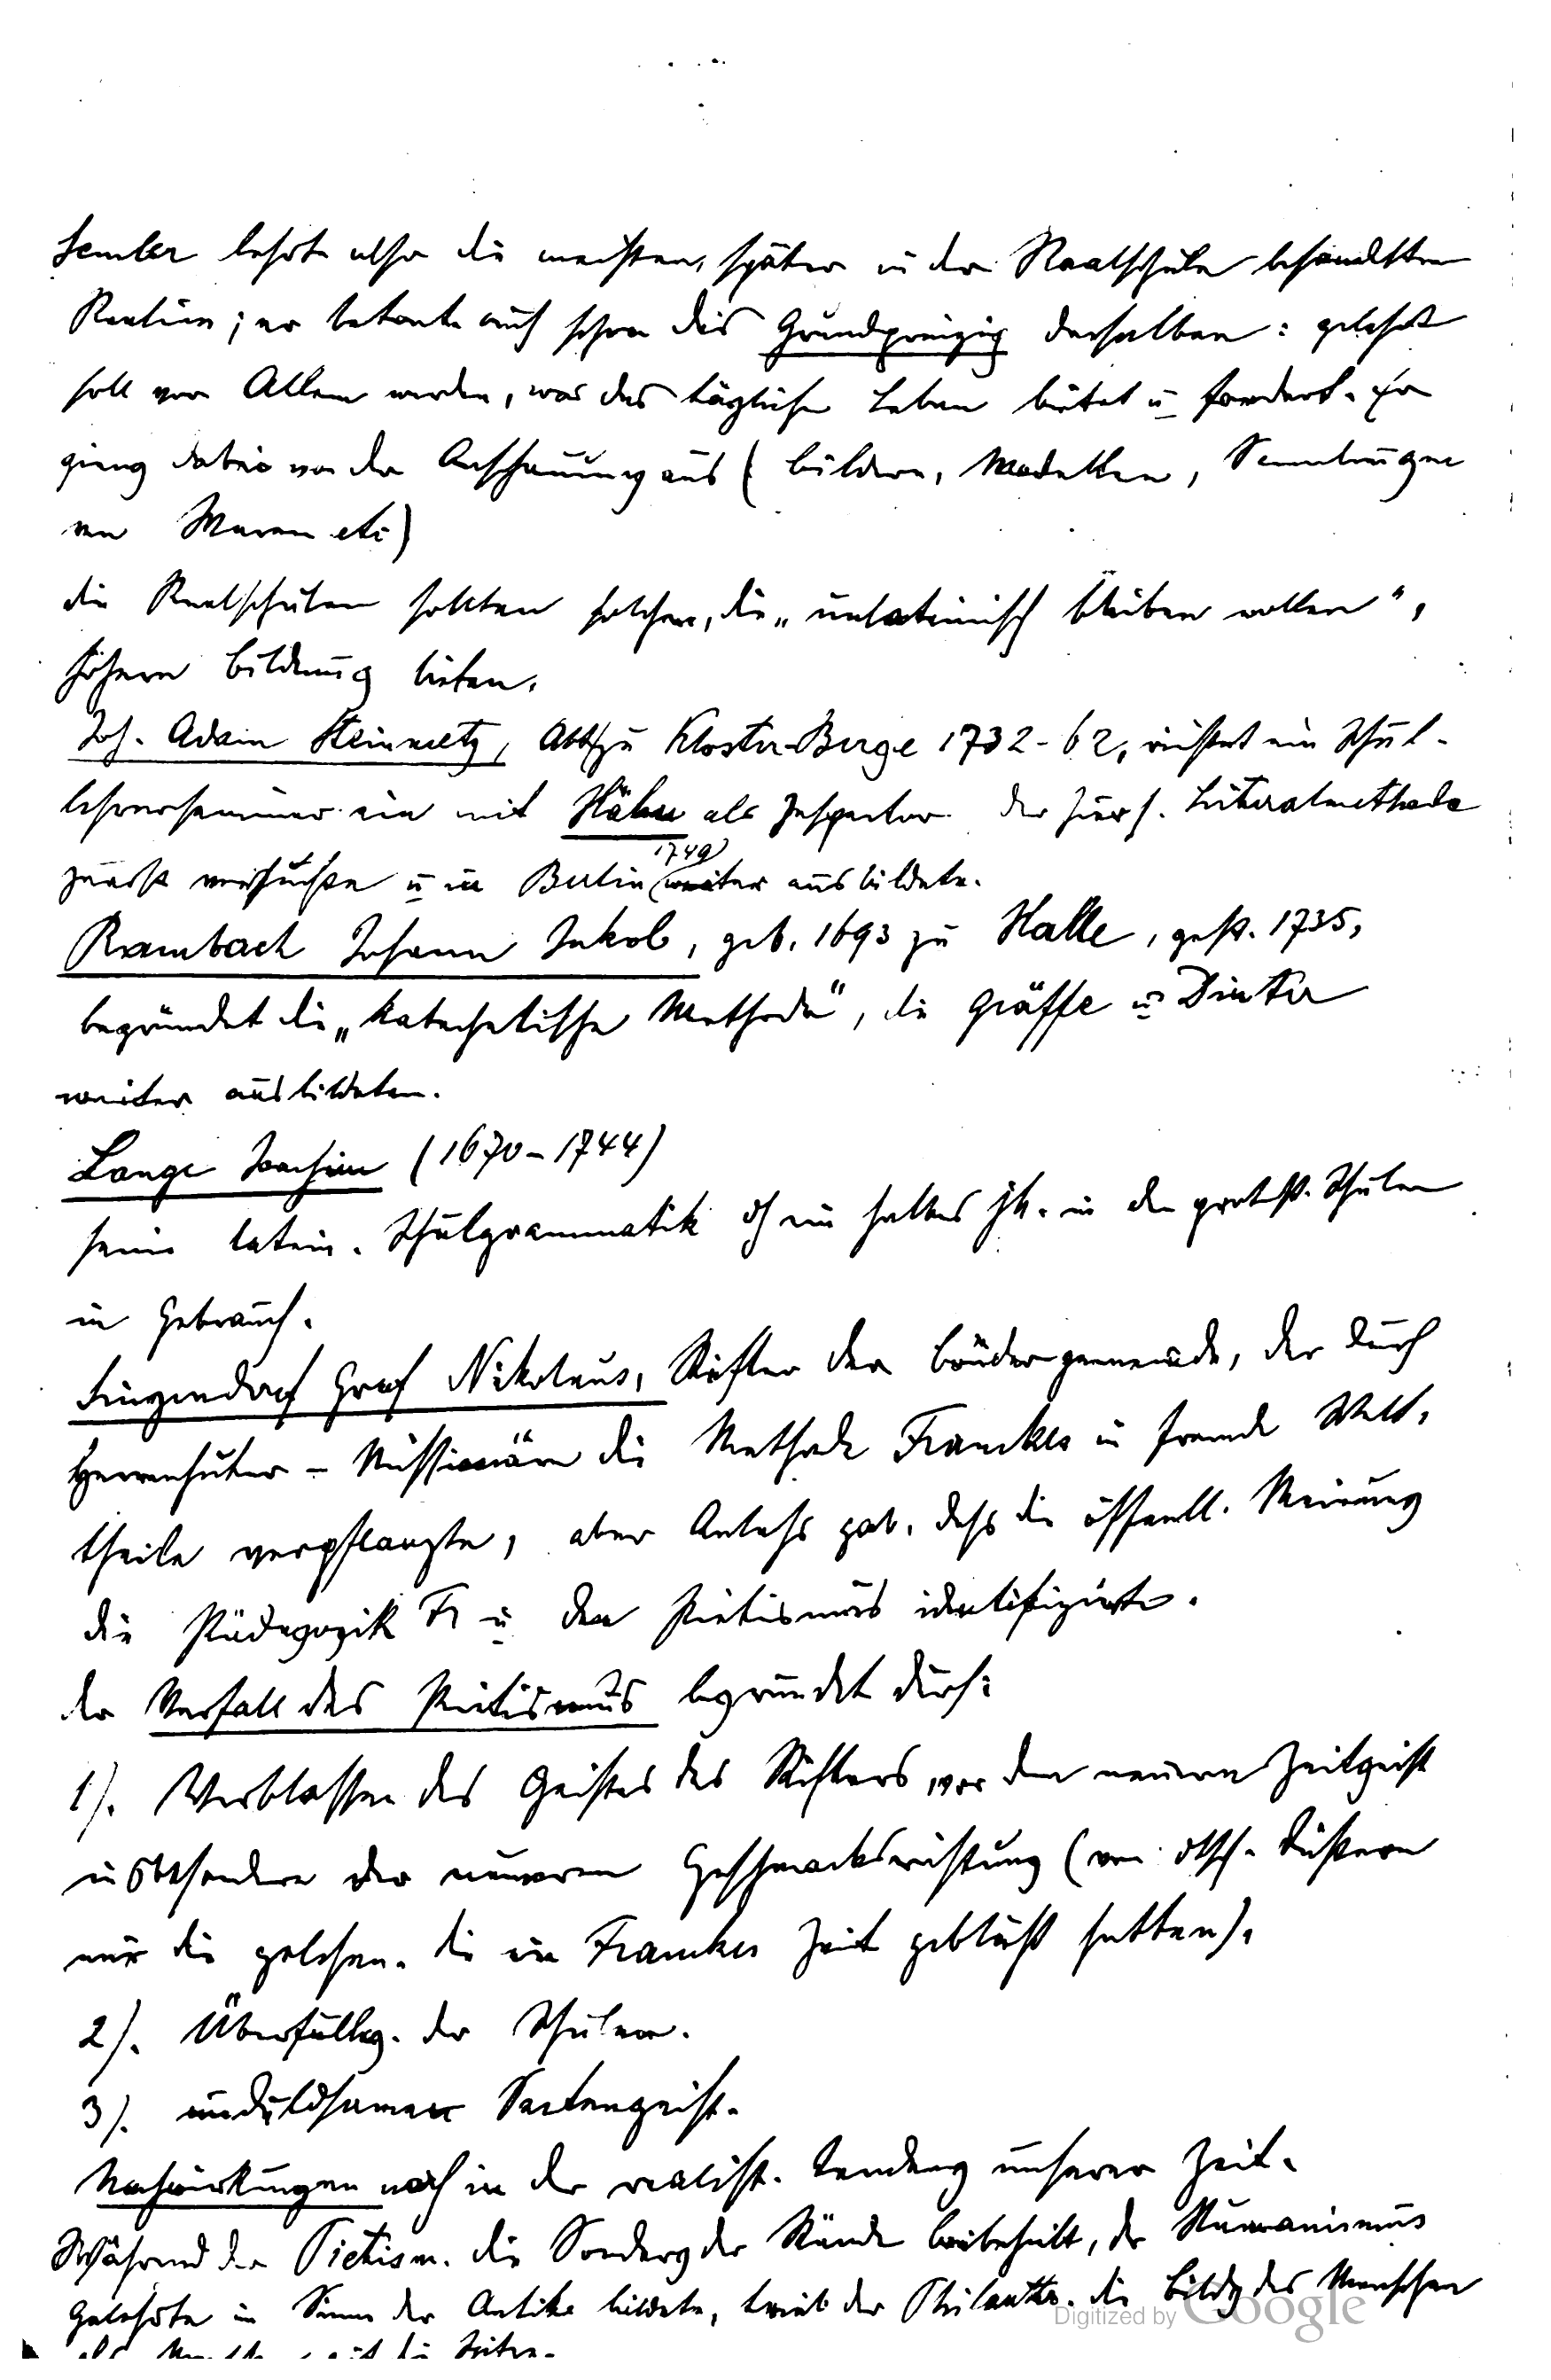 Semler lehrte also die meisten, später in der Realschule behandelten
Realien; er betonte auch schon das Grundprinzip derselben: gelehrt
soll vor Allem werden, was das tägliche Leben bietet u fordert. Er
gieng dabei von der Anschauung aus (Bildern, Modellen, Sammlungen
von Waren etc)
die Realschulen sollten solchen, die „unlateinisch bleiben wollen“,
höhern Bildung bieten.
Joh. Adam Steinmetz, Abt zu Kloster-Berge 1732-62, richtet ein Schul-
lehrerseminar ein mit Hähn als Inspector der hier s. Literalmethode
zuerst versuchte u in Berlin (1749) weiter ausbildete.
Rambach Johann Jakob, geb. 1693 zu Halle, gest. 1735,
begründet die „katechetische Methode“, die Gräffe u Dinter
weiter ausbildeten.
Lange Joachim (1670-1744)
seine latein. Schulgrammatik dh ein halbes Jh. in den protest. Schulen
in Gebrauch.
Zinzendorf Graf Nikolaus, Stifter der Brüdergemeinde, der durch
Herrenhuter-Missionäre die Methode Franckes in fremde Welt-
theile verpflanzte, aber Anlass gab, dass die öffentl. Meinung
die Pädagogik Fr u den Pietismus identifizirte.
der Verfall des Pietismus begründet durch:
1). Verblassen des Geistes des Stifters vor dem neuern Zeitgeist
insbesondere der neueren Geschmacksrichtung (von dtsch. Dichtern
nur die gelesen, die in Franckes Zeit geblüht hatten).
2). Überfüllg. der Schulen.
3). unduldsamer Sectengeist.
Nachwirkungen noch in der realist. Tendenz unserer Zeit.
Während der Pietism. die Sonderg der Stände beibehielt, der Humanismus
Gelehrte im Sinne der Antike bildete, trieb der Philanthr. die Bildg des Menschen
Digitized by Google